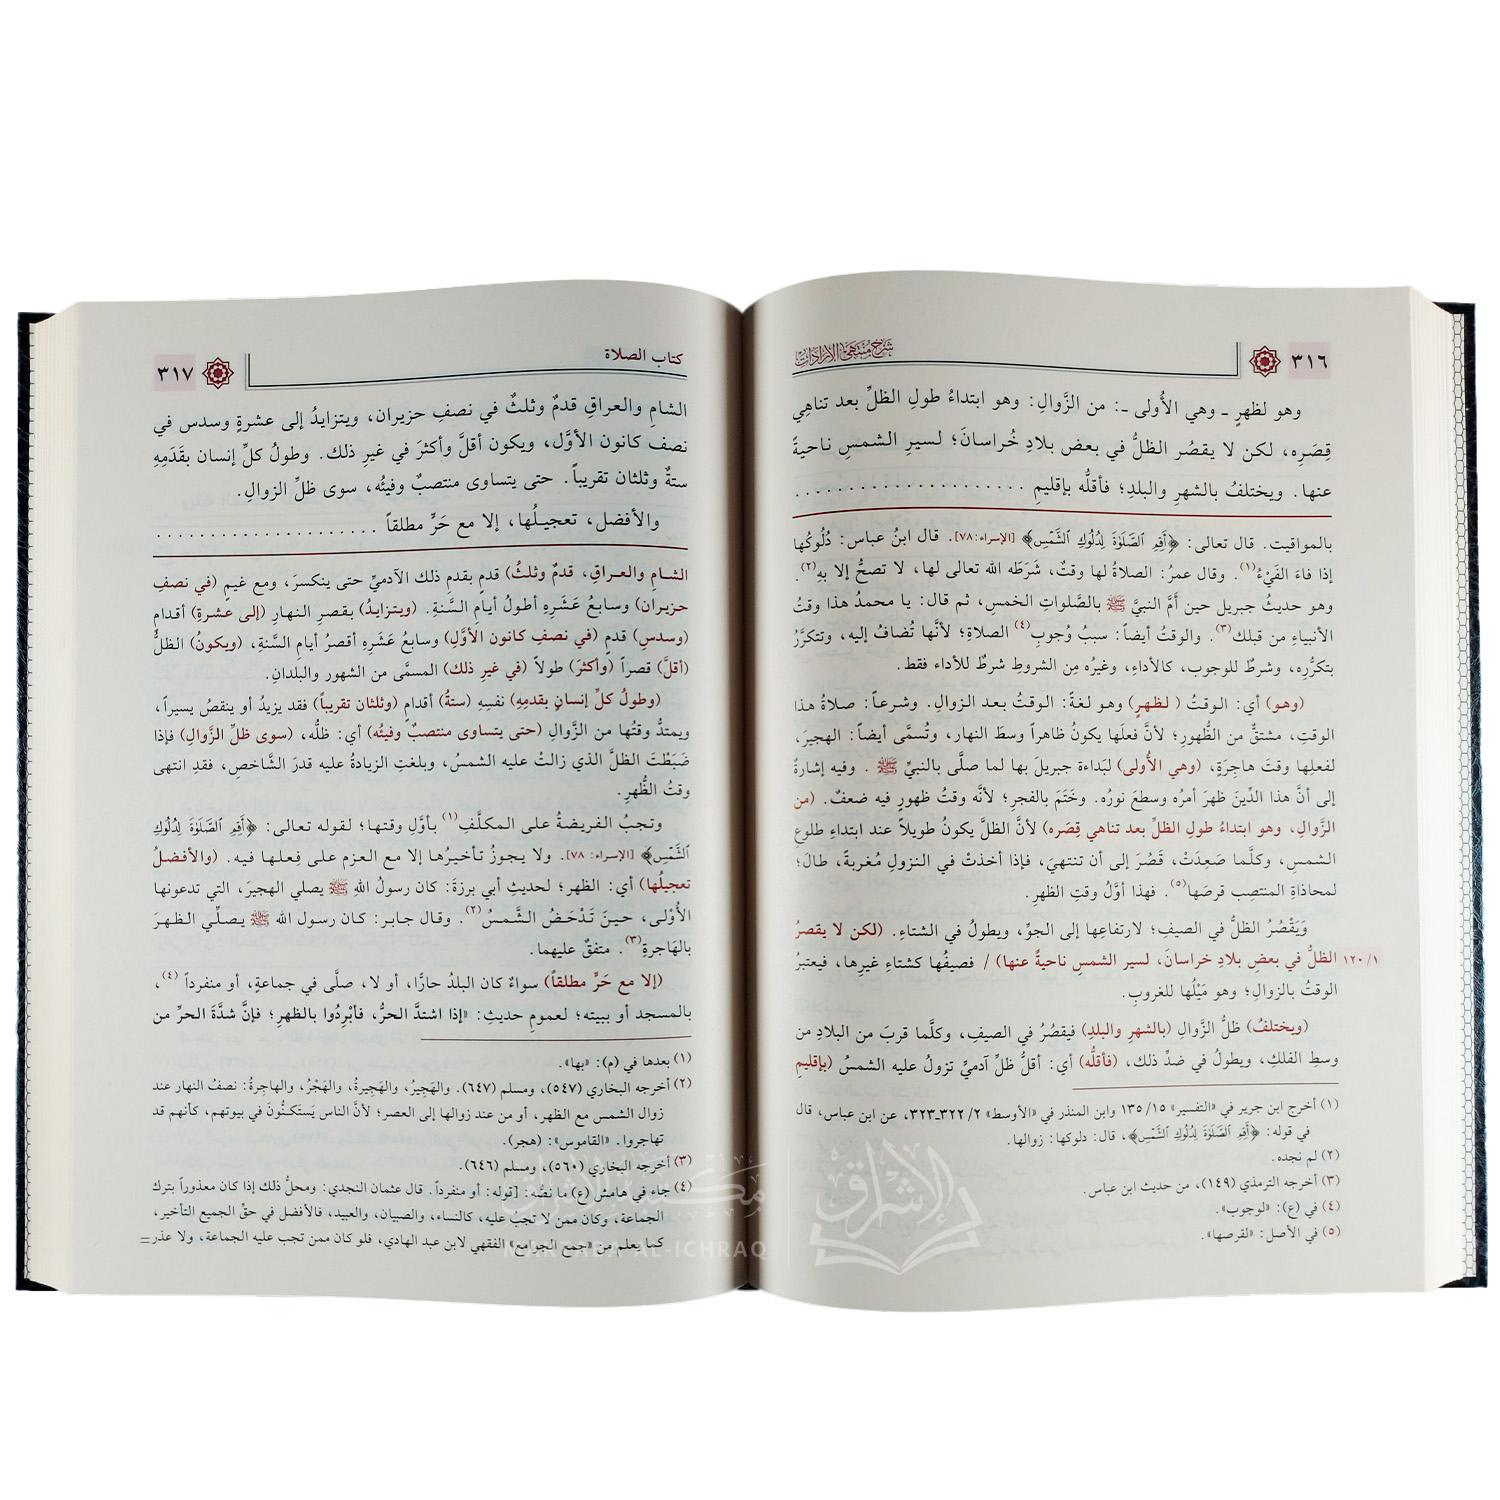 ٣١٦ شرح منتهى الإرادات
وهو لظهرٍ ـ وهي الأُولى ـ: من الزَّوالِ: وهو ابتداءُ طولِ الظلِّ بعد تناهِي
قِصَرِه، لكن لا يقصُر الظلُّ في بعض بلادِ خُراسانَ؛ لسيرِ الشمسِ ناحيةً
عنها. ويختلفُ بالشهرِ والبلدِ؛ فأقلُّه بإقليمِ . . . . . . . . . . . . . . . . . . . . . .
بالمواقيت. قال تعالى: ﴿أَقِمِ ٱلصَّلَوٰةَ لِدُلُوكِ ٱلشَّمْسِ﴾ [الإسراء: ٧٨]. قال ابنُ عباس: دُلُوكُها
إذا فاءَ الفَيْءُ(١). وقال عمرُ: الصلاةُ لها وقتٌ، شَرَطَه الله تعالى لها، لا تصحُّ إلا بهِ(٢).
وهو حديثُ جبريل حين أمَّ النبيَّ ﷺ بالصَّلواتِ الخمسِ، ثم قال: يا محمدُ هذا وقتُ
الأنبياءِ من قبلك(٣). والوقتُ أيضاً: سببُ وُجوبِ(٤) الصلاةِ؛ لأنَّها تُضافُ إليه، وتتكرَّرُ
بتكرُّرِه، وشرطٌ للوجوب، كالأداءِ، وغيرُه مِن الشروطِ شرطٌ للأداء فقط.
(وهو) أي: الوقتُ (لظهرٍ) وهو لغةً: الوقتُ بعد الزوالِ. وشرعاً: صلاةُ هذا
الوقتِ، مشتقٌّ من الظُّهورِ؛ لأنَّ فعلَها يكونُ ظاهراً وسطَ النهار، وتُسمَّى أيضاً: الهجيرَ،
لفعلِها وقتَ هاجِرَةٍ، (وهي الأُولى) لبَداءة جبريلَ بها لما صلَّى بالنبيِّ ﷺ. وفيه إشارةٌ
إلى أنَّ هذا الدِّينَ ظهرَ أمرُه وسطعَ نورُه. وخَتَمَ بالفجرِ؛ لأنَّه وقتُ ظهورٍ فيه ضعفٌ. (من
الزَّوالِ، وهو ابتداءُ طولِ الظلِّ بعد تناهي قِصَره) لأنَّ الظلَّ يكونُ طويلاً عند ابتداءِ طلوعِ
الشمسِ، وكلَّما صَعِدَتْ، قَصُرَ إلى أن تنتهيَ، فإذا أخذتْ في النزولِ مُغربةً، طالَ؛
لمحاذاةِ المنتصِب قرصَها(٥). فهذا أوَّلُ وقتِ الظهرِ.
وَيَقْصُرُ الظلُّ في الصيفِ؛ لارتفاعِها إلى الجوِّ، ويطولُ في الشتاءِ. (لكن لا يقصرُ
الظلُّ في بعضِ بلادِ خراسانَ، لسير الشمسِ ناحيةً عنها) / فصيفُها كشتاءِ غيرِها، فيعتبرُ ١٢٠/١
الوقتُ بالزوالِ؛ وهو مَيْلُها للغروبِ.
(ويختلفُ) ظلُّ الزَّوالِ (بالشهرِ والبلدِ) فيقصُرُ في الصيفِ، وكلَّما قربَ من البلادِ من
وسطِ الفلكِ، ويطولُ في ضدِّ ذلك، (فأقلُّه) أي: أقلُّ ظلِّ آدميٍّ تزولُ عليه الشمسُ (بإقليمِ
(١) أخرج ابن جرير في «التفسير» ١٥/ ١٣٥ وابن المنذر في «الأوسط» ٢/ ٣٢٢ـ٣٢٣، عن ابن عباس، قال
في قوله: ﴿أَقِمِ ٱلصَّلَوٰةَ لِدُلُوكِ ٱلشَّمْسِ﴾، قال: دلوكها: زوالها.
(٢) لم نجده.
(٣) أخرجه الترمذي (١٤٩)، من حديث ابن عباس.
(٤) في (ع): «لوجوب».
(٥) في الأصل: «لقرصها».
كتاب الصلاة ٣١٧
الشامِ والعراقِ قدمٌ وثلثٌ في نصفِ حزيران، ويتزايدُ إلى عشرةٍ وسدس في
نصف كانون الأوَّل، ويكون أقلَّ وأكثرَ في غيرِ ذلك. وطولُ كلِّ إنسان بقَدَمِهِ
ستةٌ وثلثان تقريباً. حتى يتساوى منتصبٌ وفيئُه، سوى ظلِّ الزوالِ.
والأفضل، تعجيلُها، إلا مع حَرٍّ مطلقاً . . . . . . . . . . . . . . . . . . . . .
الشامِ والعراقِ، قدمٌ وثلثُ) قدمٍ بقدمِ ذلك الآدميِّ حتى ينكسرَ، ومع غيمٍ (في نصفِ
حزيران) وسابعُ عَشَرِهِ أطولُ أيامِ السَّنةِ. (ويتزايدُ) بقصرِ النهارِ (إلى عشرةِ) أقدامٍ
(وسدسِ) قدمٍ (في نصفِ كانون الأوَّلِ) وسابعُ عَشَرِه أقصرُ أيامِ السَّنةِ، (ويكونُ) الظلُّ
(أقلَّ) قصراً (وأكثرَ) طولاً (في غيرِ ذلك) المسمَّى من الشهور والبلدانِ.
(وطولُ كلِّ إنسانٍ بقدمِهِ) نفسِهِ (ستةُ) أقدامٍ (وثلثان تقريباً) فقد يزيدُ أو ينقصُ يسيراً،
ويمتدُّ وقتُها من الزَّوالِ (حتى يتساوى منتصبٌ وفيئُه) أي: ظلُّه، (سوى ظلِّ الزَّوالِ) فإذا
ضَبَطْتَ الظلَّ الذي زالتْ عليه الشمسُ، وبلغتِ الزيادةُ عليه قدرَ الشَّاخصِ، فقدِ انتهى
وقتُ الظُّهرِ.
وتجبُ الفريضةُ على المكلَّفِ(١) بأوَّلِ وقتها؛ لقوله تعالى: ﴿أَقِمِ ٱلصَّلَوٰةَ لِدُلُوكِ
ٱلشَّمْسِ﴾ [الإسراء: ٧٨]. ولا يجوزُ تأخيرُها إلا مع العزمِ على فِعلها فيه. (والأفضلُ
تعجيلُها) أي: الظهر؛ لحديثِ أبي برزةَ: كان رسولُ الله ﷺ يصلي الهجيرَ، التي تدعونها
الأُوْلى، حينَ تَدْحَضُ الشَّمسُ(٢). وقال جابر: كان رسول الله ﷺ يصلِّي الظهرَ
بالهَاجرةِ(٣). متفقٌ عليهما.
(إلا مع حَرٍّ مطلقاً) سواءٌ كان البلدُ حارًّا، أو لا، صلَّى في جماعةٍ، أو منفرداً(٤)،
بالمسجد أو ببيته؛ لعمومِ حديثِ: «إذا اشتدَّ الحرُّ، فأَبْرِدُوا بالظهرِ؛ فإنَّ شدَّةَ الحرِّ من
(١) بعدها في (م): «بها».
(٢) أخرجه البخاري (٥٤٧)، ومسلم (٦٤٧). والهَجِيرُ، والهَجِيرةُ، والهَجْرُ، والهاجِرةُ: نصفُ النهار عند
زوال الشمس مع الظهر، أو من عند زوالها إلى العصر؛ لأنَّ الناس يَستَكنُّون في بيوتهم، كأنهم قد
تهاجروا. «القاموس»: (هجر).
(٣) أخرجه البخاري (٥٦٠)، ومسلم (٦٤٦).
(٤) جاء في هامش (ع) ما نصُّه: [قوله: أو منفرداً. قال عثمان النجدي: ومحلُّ ذلك إذا كان معذوراً بترك
الجماعة، وكان ممن لا تجبُ عليه، كالنساء، والصبيان، والعبيد، فالأفضل في حقِّ الجميع التأخير،
كما يعلم من «جمع الجوامع» الفقهي لابن عبد الهادي، فلو كان ممن تجب عليه الجماعة، ولا عذر =
مكتبة الإشراق
MAKTABA AL-ICHRAQ
الإشراق